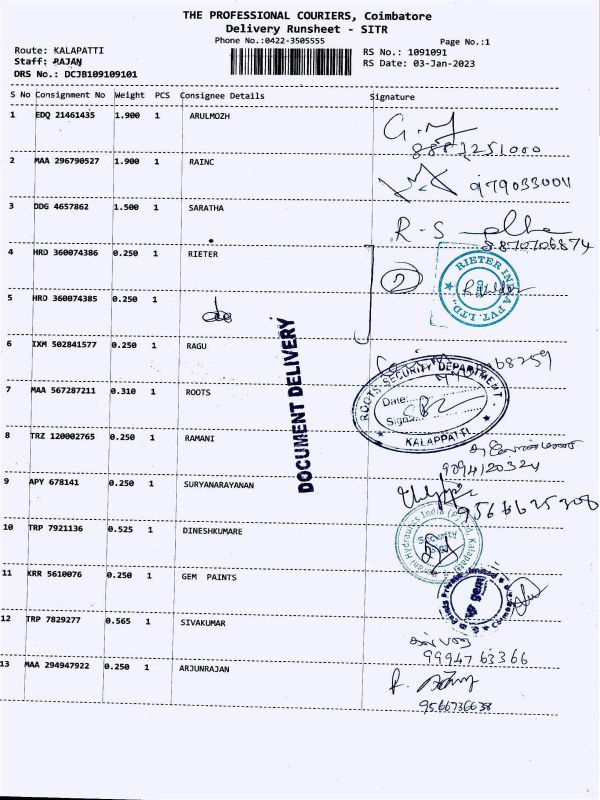 THE PROFESSIONAL COURIERS, Coimbatore
Delivery Runsheet - SITR
Phone No.:0422-3505555
Page No.:1
Route: KALAPATTI
RS No.: 1091091
Staff: RAJAN
RS Date: 03-Jan-2023
DRS No.: DCJB109109101
S No Consignment No Weight PCS Consignee Details Signature
1 EDQ 21461435 1.900 1 ARULMOZH
2 MAA 296790527 1.900 1 RAINC
979033001
3 DDG 4657862 1.500 1 SARATHA
R-S
8870706874
4 HRD 360074386 0.250 1 RIETER
2
RIETER INDIA PVT. LTD.,
5 HRD 360074385 0.250 1
do
6 IXM 502841577 0.250 1 RAGU
DOCUMENT DELIVERY
7 MAA 567287211 0.310 1 ROOTS
ROOTS SECURITY DEPARTMENT
Date:
Sign:
KALAPPATTI
8 TRZ 120002765 0.250 1 RAMANI
9294120324
9 APY 678141 0.250 1 SURYANARAYANAN
10 TRP 7921136 0.525 1 DINESHKUMARE
Hydraulics India (P) Ltd, Kalapatti
Security
11 KRR 5610076 0.250 1 GEM PAINTS
Paints Private Limited
gem
12 TRP 7829277 0.565 1 SIVAKUMAR
9994763366
13 MAA 294947922 0.250 1 ARJUNRAJAN
9566736638